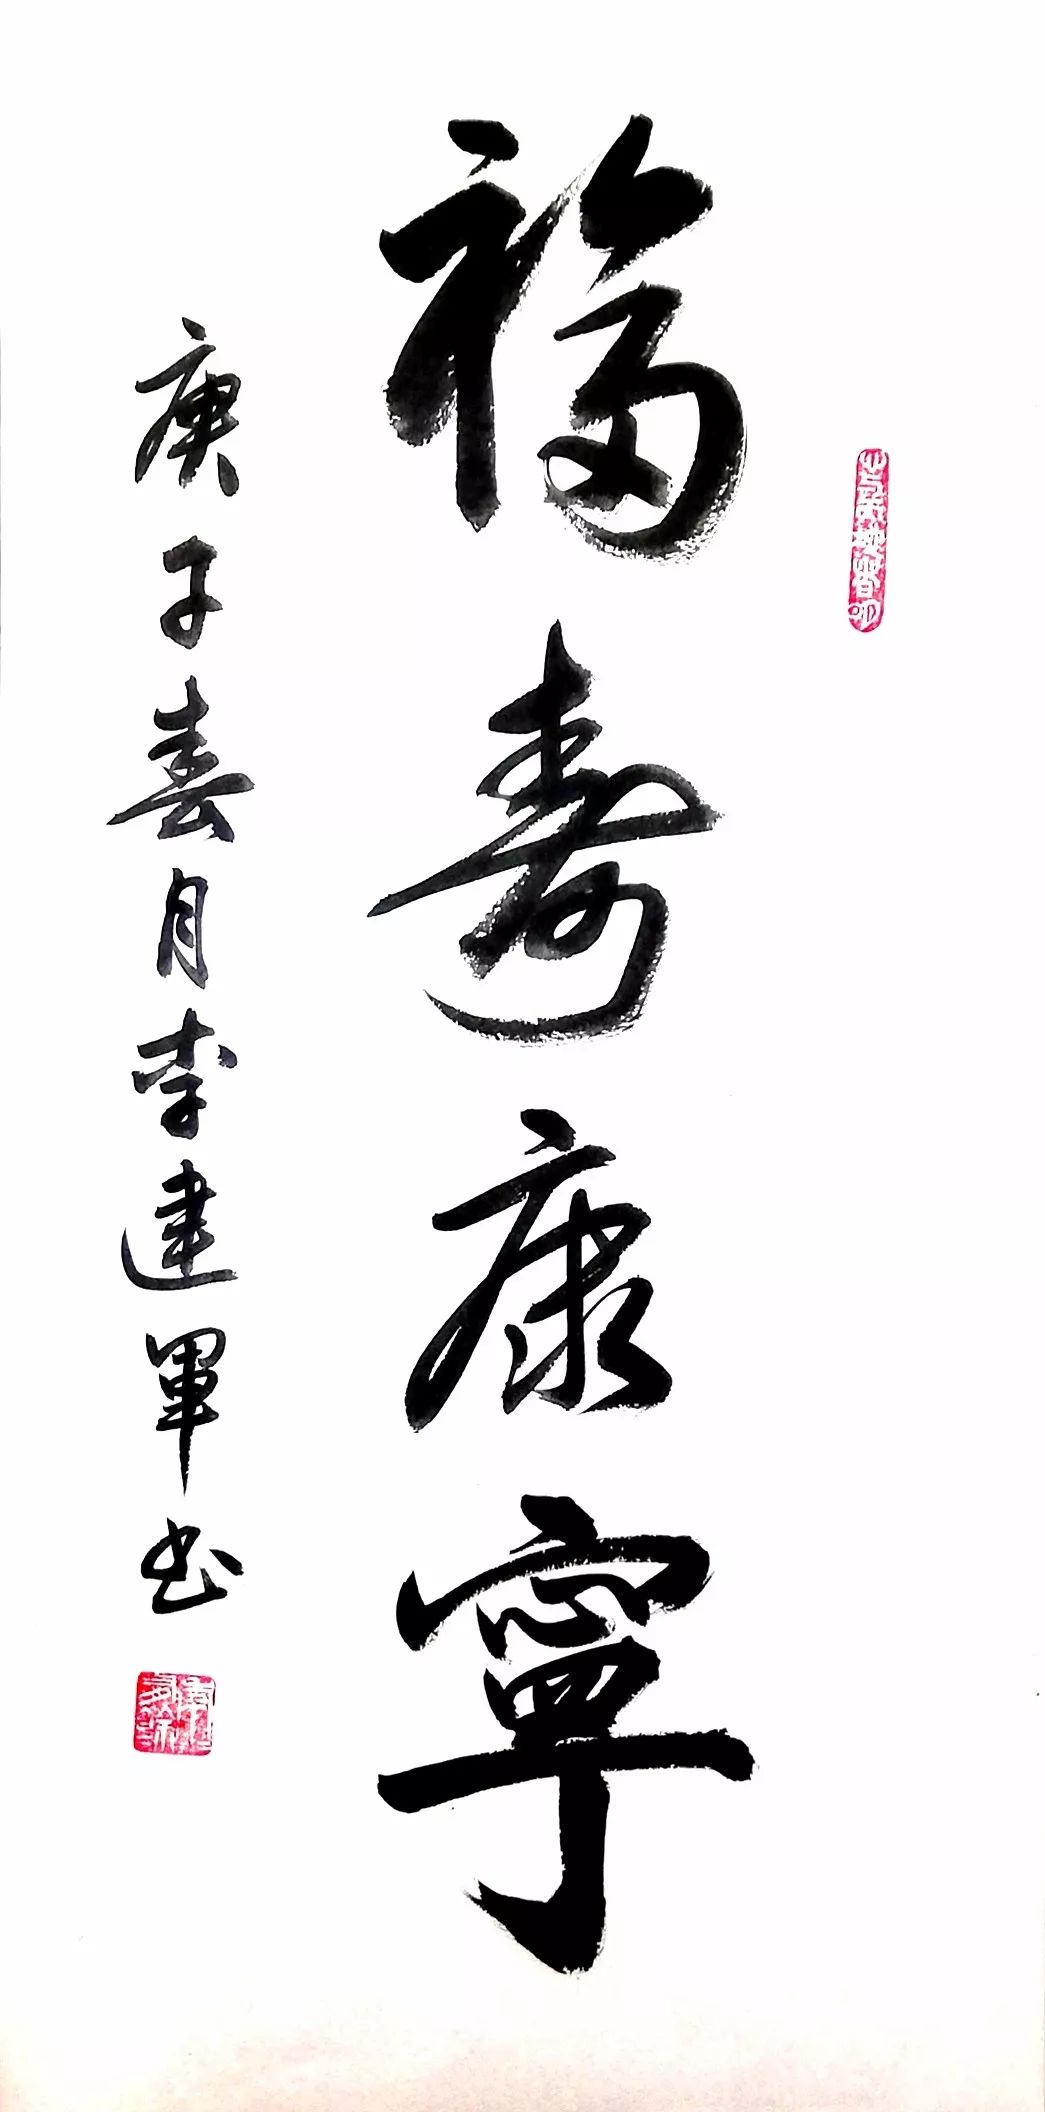 福壽康寧
庚子春月李建軍书